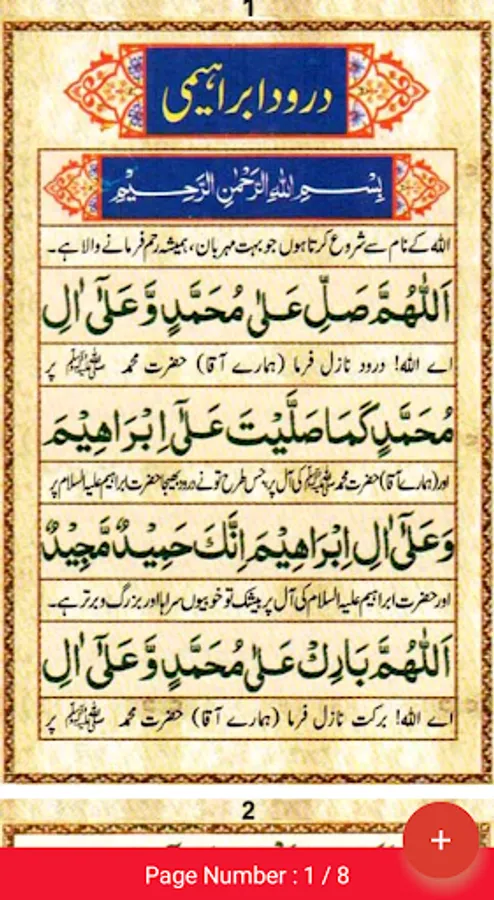 1
درود ابراہیمی
بِسْمِ اللهِ الرَّحْمٰنِ الرَّحِيْمِ
اللہ کے نام سے شروع کرتا ہوں جو بہت مہربان، ہمیشہ رحم فرمانے والا ہے۔
اَللّٰهُمَّ صَلِّ عَلٰى مُحَمَّدٍ وَّ عَلٰٓى اٰلِ
اے اللہ! درود نازل فرما (ہمارے آقا) حضرت محمد ﷺ پر
مُحَمَّدٍ كَمَا صَلَّيْتَ عَلٰٓى اِبْرَاهِيْمَ
اور (ہمارے آقا) حضرت محمد ﷺ کی آل پر، جس طرح تونے درود بھیجا حضرت ابراہیم علیہ السلام پر
وَعَلٰٓى اٰلِ اِبْرَاهِيْمَ اِنَّكَ حَمِيْدٌ مَّجِيْدٌ
اور حضرت ابراہیم علیہ السلام کی آل پر بیشک تو خوبیوں سراہا اور بزرگ و برتر ہے۔
اَللّٰهُمَّ بَارِكْ عَلٰى مُحَمَّدٍ وَّ عَلٰٓى اٰلِ
اے اللہ! برکت نازل فرما (ہمارے آقا) حضرت محمد ﷺ پر
2
+
Page Number : 1 / 8